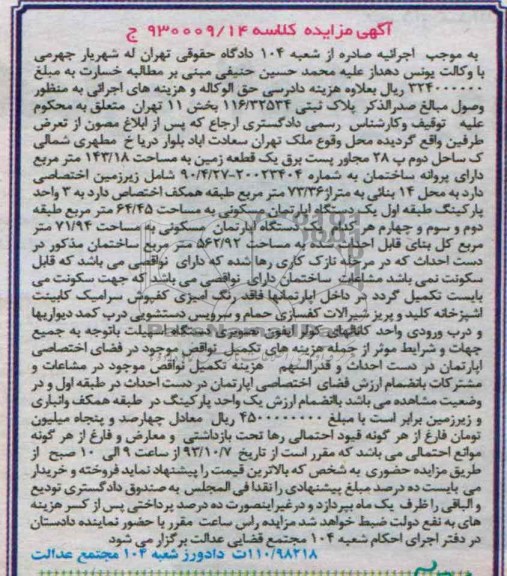 آگهی مزایده کلاسه ۹۳۰۰۰۹/۱۴ ج
به موجب اجرائیه صادره از شعبه ۱۰۴ دادگاه حقوقی تهران له شهریار جهرمی
با وکالت یونس دهداز علیه محمد حسین حنیفی مبنی بر مطالبه خسارت به مبلغ
۳۲۴۰۰۰۰۰۰ ریال بعلاوه هزینه دادرسی حق الوکاله و هزینه های اجرائی به منظور
وصول مبالغ صدرالذکر پلاک ثبتی ۱۱۶/۳۲۵۳۴ بخش ۱۱ تهران متعلق به محکوم
علیه توقیف وکارشناس رسمی دادگستری ارجاع که پس از ابلاغ مصون از تعرض
طرفین واقع گردیده محل وقوع ملک تهران سعادت اباد بلوار دریا خ مطهری شمالی
ک ساحل دوم پ ۲۸ مجاور پست برق یک قطعه زمین به مساحت ۱۴۳/۱۸ متر مربع
دارای پروانه ساختمان به شماره ۲۰۰۲۳۴۰۴-۹۰/۴/۲۷ شامل زیرزمین اختصاصی
دارد به محل ۱۴ بنائی به متراژ ۷۳/۳۶ متر مربع طبقه همکف اختصاص دارد به ۳ واحد
پارکینگ طبقه اول یک دستگاه اپارتمان مسکونی به مساحت ۶۴/۴۵ متر مربع طبقه
دوم و سوم و چهارم هر کدام یک دستگاه اپارتمان مسکونی به مساحت ۷۱/۹۴ متر
مربع کل بنای قابل احداث به مساحت ۵۶۲/۹۲ متر مربع ساختمان مذکور در
دست احداث که در مرحله نازک کاری رها شده که دارای نواقصی می باشد که قابل
سکونت نمی باشد مشاعات ساختمان دارای نواقصی می باشد که جهت سکونت می
بایست تکمیل گردد در داخل اپارتمانها فاقد رنگ آمیزی کفپوش سرامیک کابینت
اشپزخانه کلید و پریز شیرالات کفسازی حمام و سرویس دستشویی درب کمد دیواریها
و درب ورودی واحد کانالهای کولر ایفون تصویری دستگاه اسپیلت باتوجه به جمیع
جهات و شرایط موثر از جمله هزینه های تکمیل نواقص موجود در فضای اختصاصی
اپارتمان در دست احداث و قدرالسهم هزینه تکمیل نواقص موجود در مشاعات و
مشترکات بانضمام ارزش فضای اختصاصی اپارتمان در دست احداث در طبقه اول و در
وضعیت مشاهده می باشد بانضمام ارزش یک واحد پارکینگ در طبقه همکف وانباری
و زیرزمین برابر است با مبلغ ۴۵۰۰۰۰۰۰۰۰ ریال معادل چهارصد و پنجاه میلیون
تومان فارغ از هر گونه قیود احتمالی رها تحت بازداشتی و معارض و فارغ از هر گونه
موانع احتمالی می باشد که مقرر است از تاریخ ۹۳/۱۰/۷ از ساعت ۹ الی ۱۰ صبح از
طریق مزایده حضوری به شخص که بالاترین قیمت را پیشنهاد نماید فروخته و خریدار
می بایست ده درصد مبلغ پیشنهادی را نقدا فی المجلس به صندوق دادگستری تودیع
و الباقی را ظرف یک ماه بپردازد و درغیراینصورت ده درصد پرداختی پس از کسر هزینه
های به نفع دولت ضبط خواهد شد مزایده راس ساعت مقرر با حضور نماینده دادستان
در دفتر اجرای احکام شعبه ۱۰۴ مجتمع قضایی عدالت برگزار می شود
۱۱۰/۹۸۲۱۸ت دادورز شعبه ۱۰۴ مجتمع عدالت